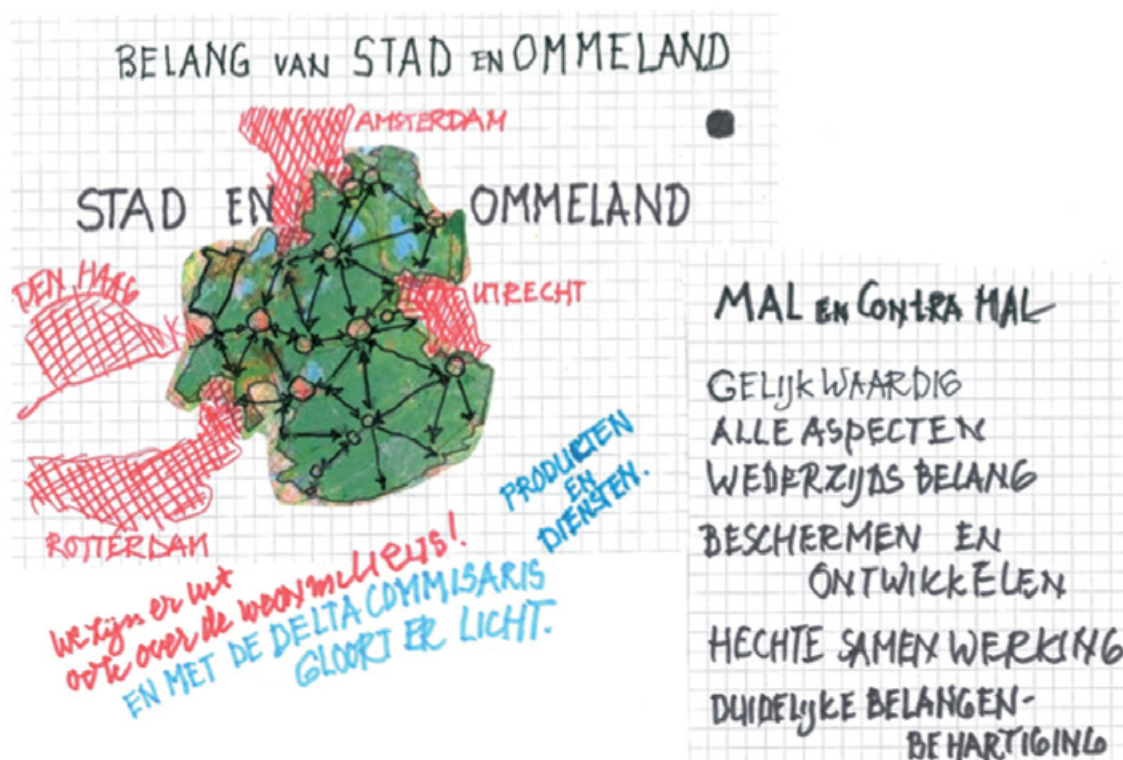 BELANG VAN STAD EN OMMELAND
AMSTERDAM
STAD EN OMMELAND
DEN HAAG
UTRECHT
ROTTERDAM
PRODUKTEN
EN
DIENSTEN.
we zijn er uit
ook over de woonmilieus!
EN MET DE DELTA COMMISARIS
GLOORT ER LICHT.
MAL EN CONTRA MAL
GELIJKWAARDIG
ALLE ASPECTEN
WEDERZIJDS BELANG
BESCHERMEN EN
ONTWIKKELEN
HECHTE SAMENWERKING
DUIDELIJKE BELANGEN-
BEHARTIGING